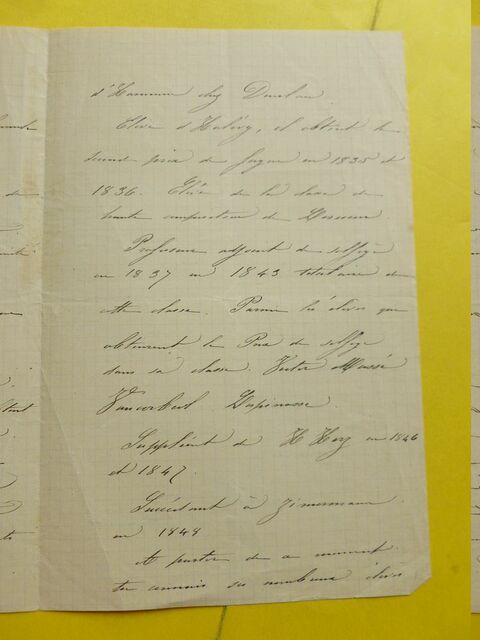 d'Harmonie chez Dourlen.
Elève d'Halévy, il obtient le
second prix de fugue en 1835 et
1836. Elève de la classe de
haute composition de Lesueur.
Professeur adjoint de solfège
en 1837 en 1843 titulaire de
cette classe. Parmi les élèves que
obtinrent le Prix de solfège
dans sa classe. Victor Massé
Vaucorbeil Lapinasse
Suppléent de H Herz en 1846
et 1847.
Succédant à Zimermann
en 1848
A partir de ce moment
tu connais ses nombreux élèves